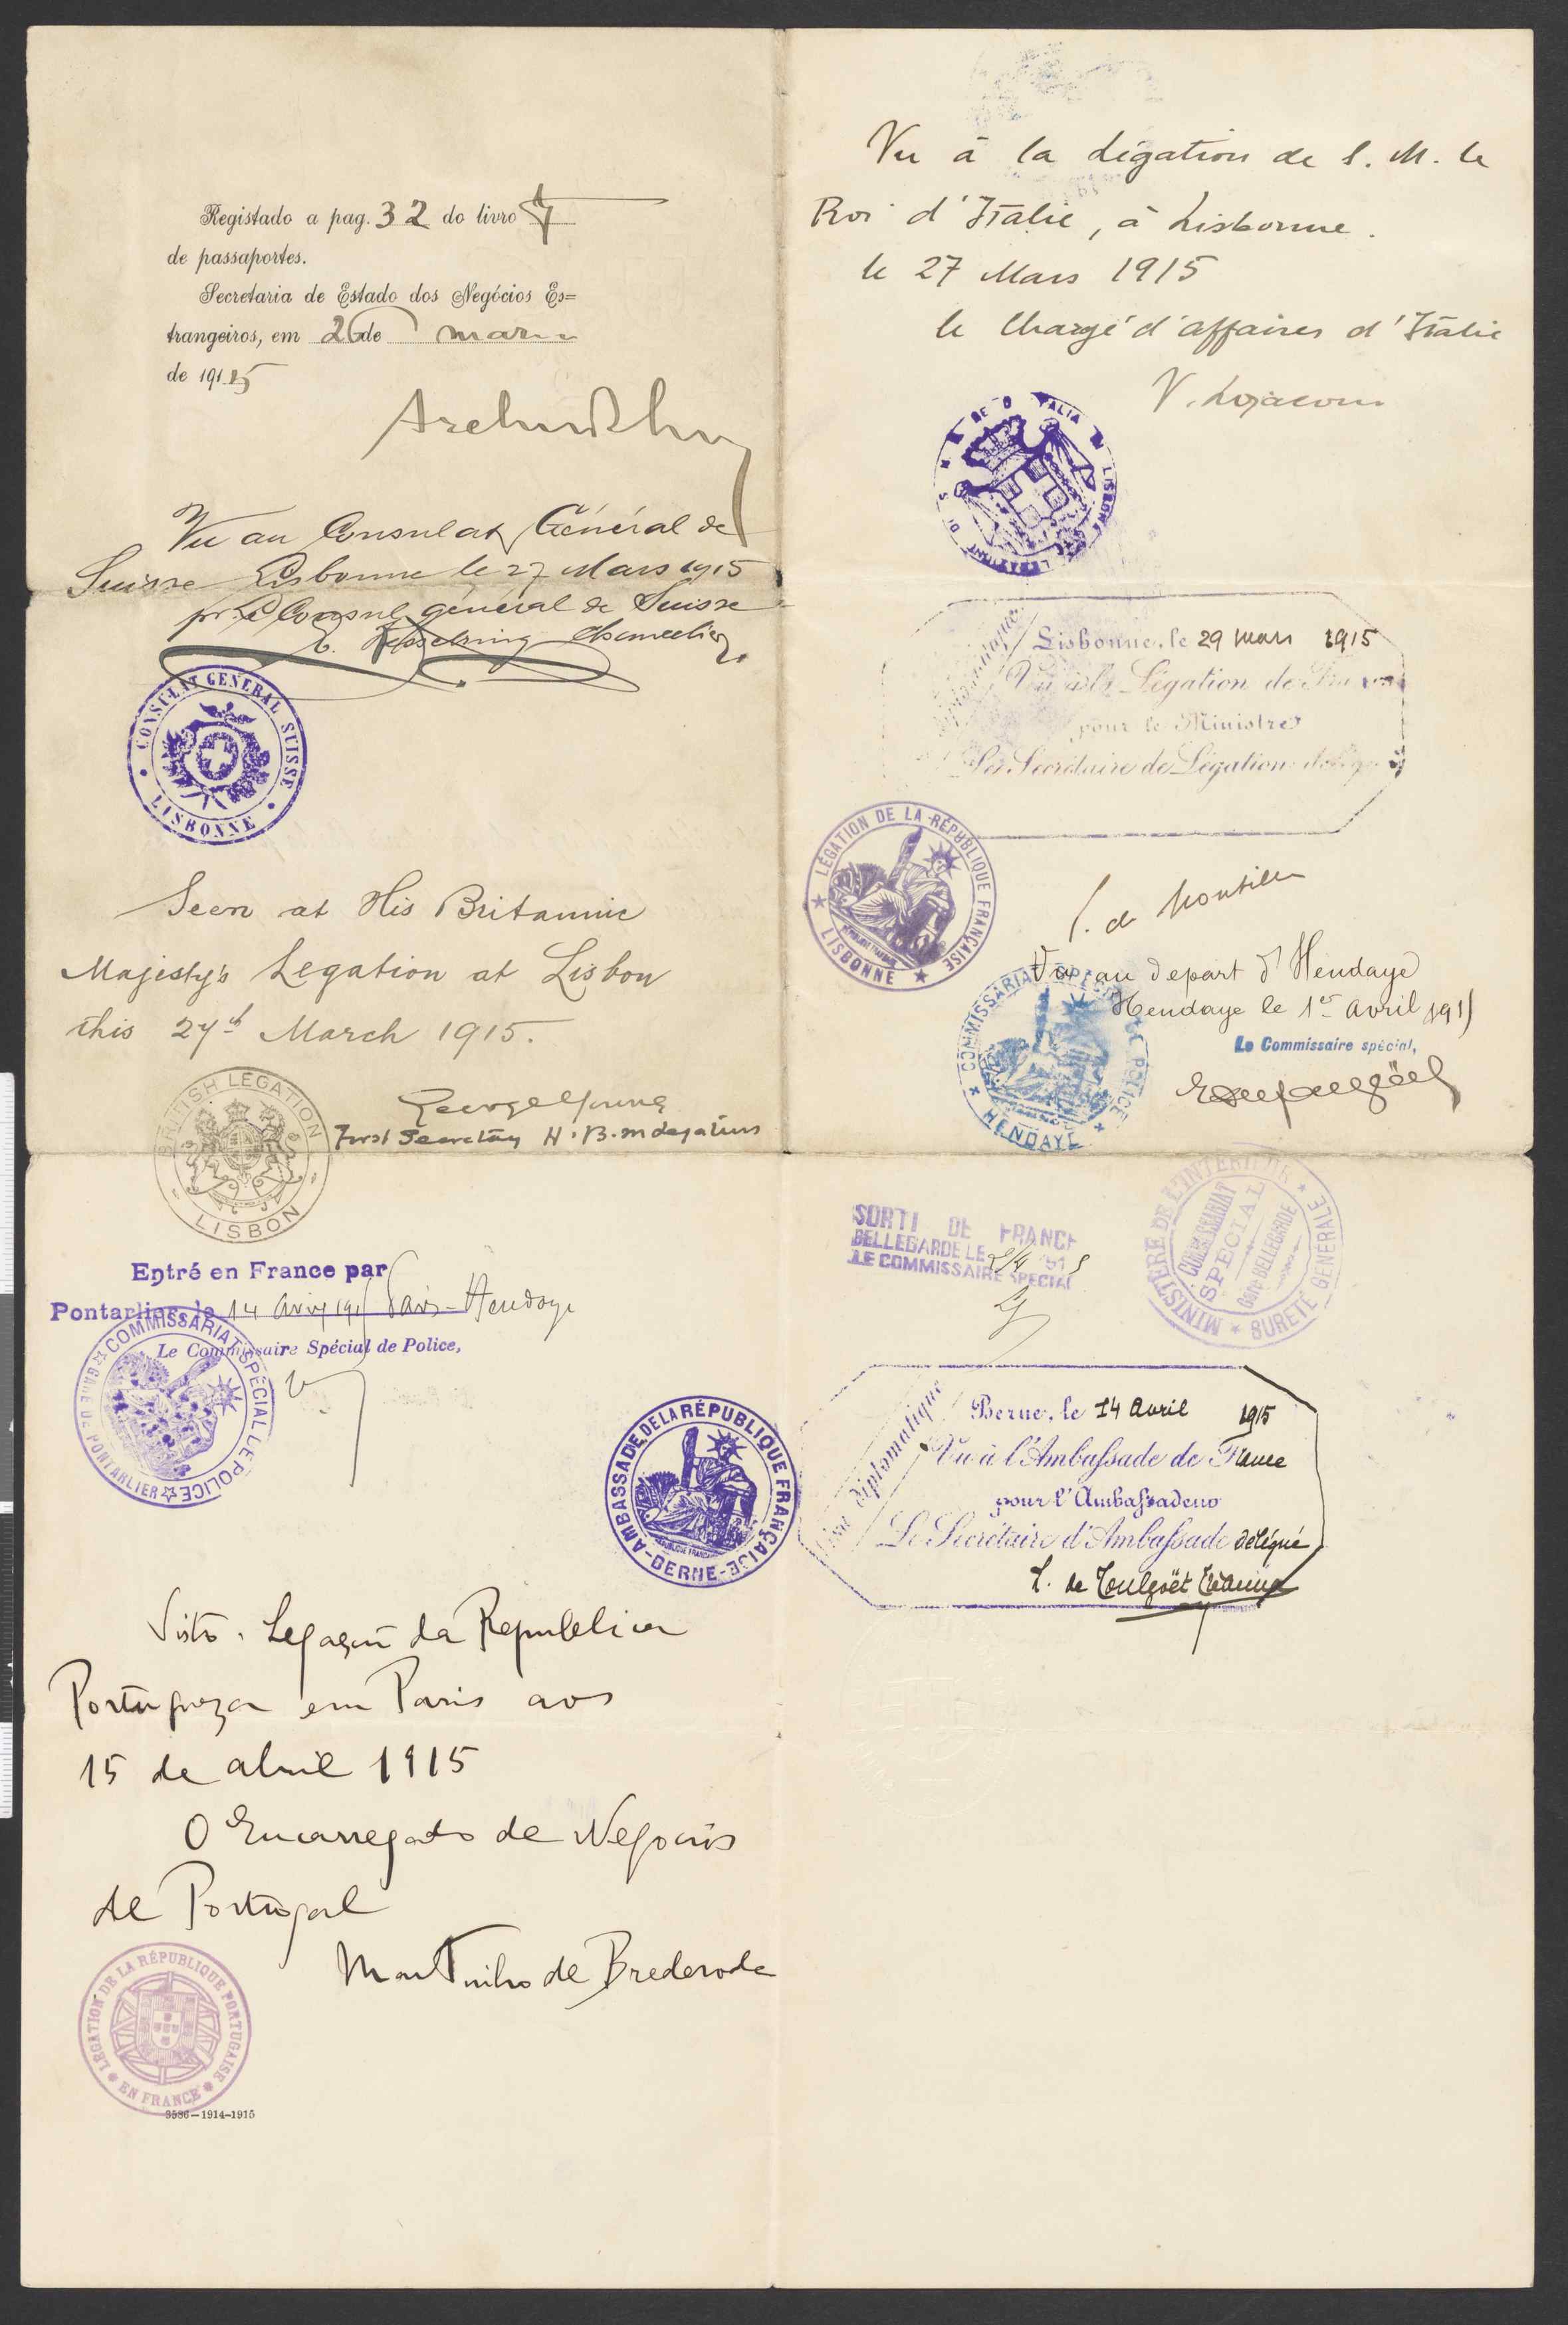 Registado a pag. 32 do livro 7
de passaportes.
Secretaria de Estado dos Negócios Es=
trangeiros, em 26 de março
de 1915
Vu au Consulat Général de
Suisse Lisbonne le 27 Mars 1915
pr. le Consul général de Suisse
Chancelier
CONSULAT GENERAL SUISSE
LISBONNE
Seen at His Britannic
Majesty's Legation at Lisbon
this 27th March 1915.
George Young
First Secretary H.B.M Legation
BRITISH LEGATION
LISBON
Entré en France par
Pontarlier, le 14 avril 1915 Paris-Hendaye
Le Commissaire Spécial de Police,
COMMISSARIAT SPÉCIAL DE POLICE
GARE DE PONTARLIER
AMBASSADE DE LA RÉPUBLIQUE FRANÇAISE
BERNE
RÉPUBLIQUE FRANÇAISE
Visto. Legação da Republica
Portugueza em Paris aos
15 de abril 1915
O Encarregado de Negocios
de Portugal
Martinho de Brederode
LÉGATION DE LA RÉPUBLIQUE PORTUGAISE
EN FRANCE
3586-1914-1915
Vu à la Légation de S. M. le
Roi d'Italie, à Lisbonne.
le 27 Mars 1915
le Chargé d'affaires d'Italie
V. Lojacono
Lisbonne, le 29 mars 1915
Vu à la Légation de France
pour le Ministre
Le Secrétaire de Légation délégué
LÉGATION DE LA RÉPUBLIQUE FRANÇAISE
LISBONNE
Vu au depart d'Hendaye
Hendaye le 1er avril 1915
Le Commissaire spécial,
COMMISSARIAT SPÉCIAL DE POLICE
HENDAYE
SORTI DE FRANCE
BELLEGARDE LE 2/4 1915
LE COMMISSAIRE SPECIAL
MINISTÈRE DE L'INTÉRIEUR
SURETÉ GÉNÉRALE
COMMISSARIAT
SPECIAL
Gare BELLEGARDE
Visa diplomatique
Berne, le 14 avril 1915
Vu à l'Ambassade de France
pour l'Ambassadeur
Le Secrétaire d'Ambassade délégué